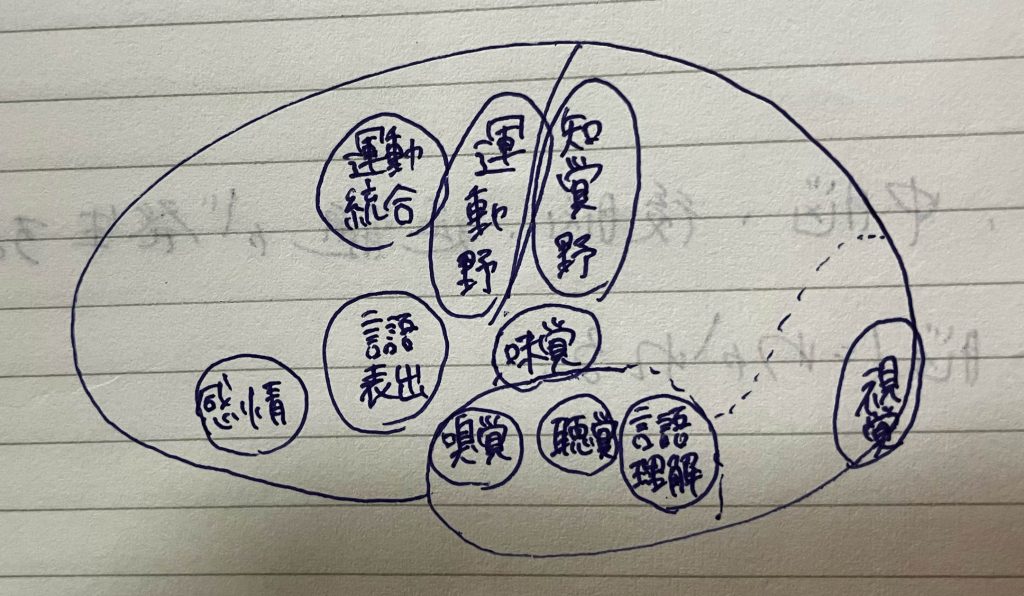 運動
統合
運動野
知覚野
言語
表出
味覚
感情
嗅覚
聴覚
言語
理解
視覚